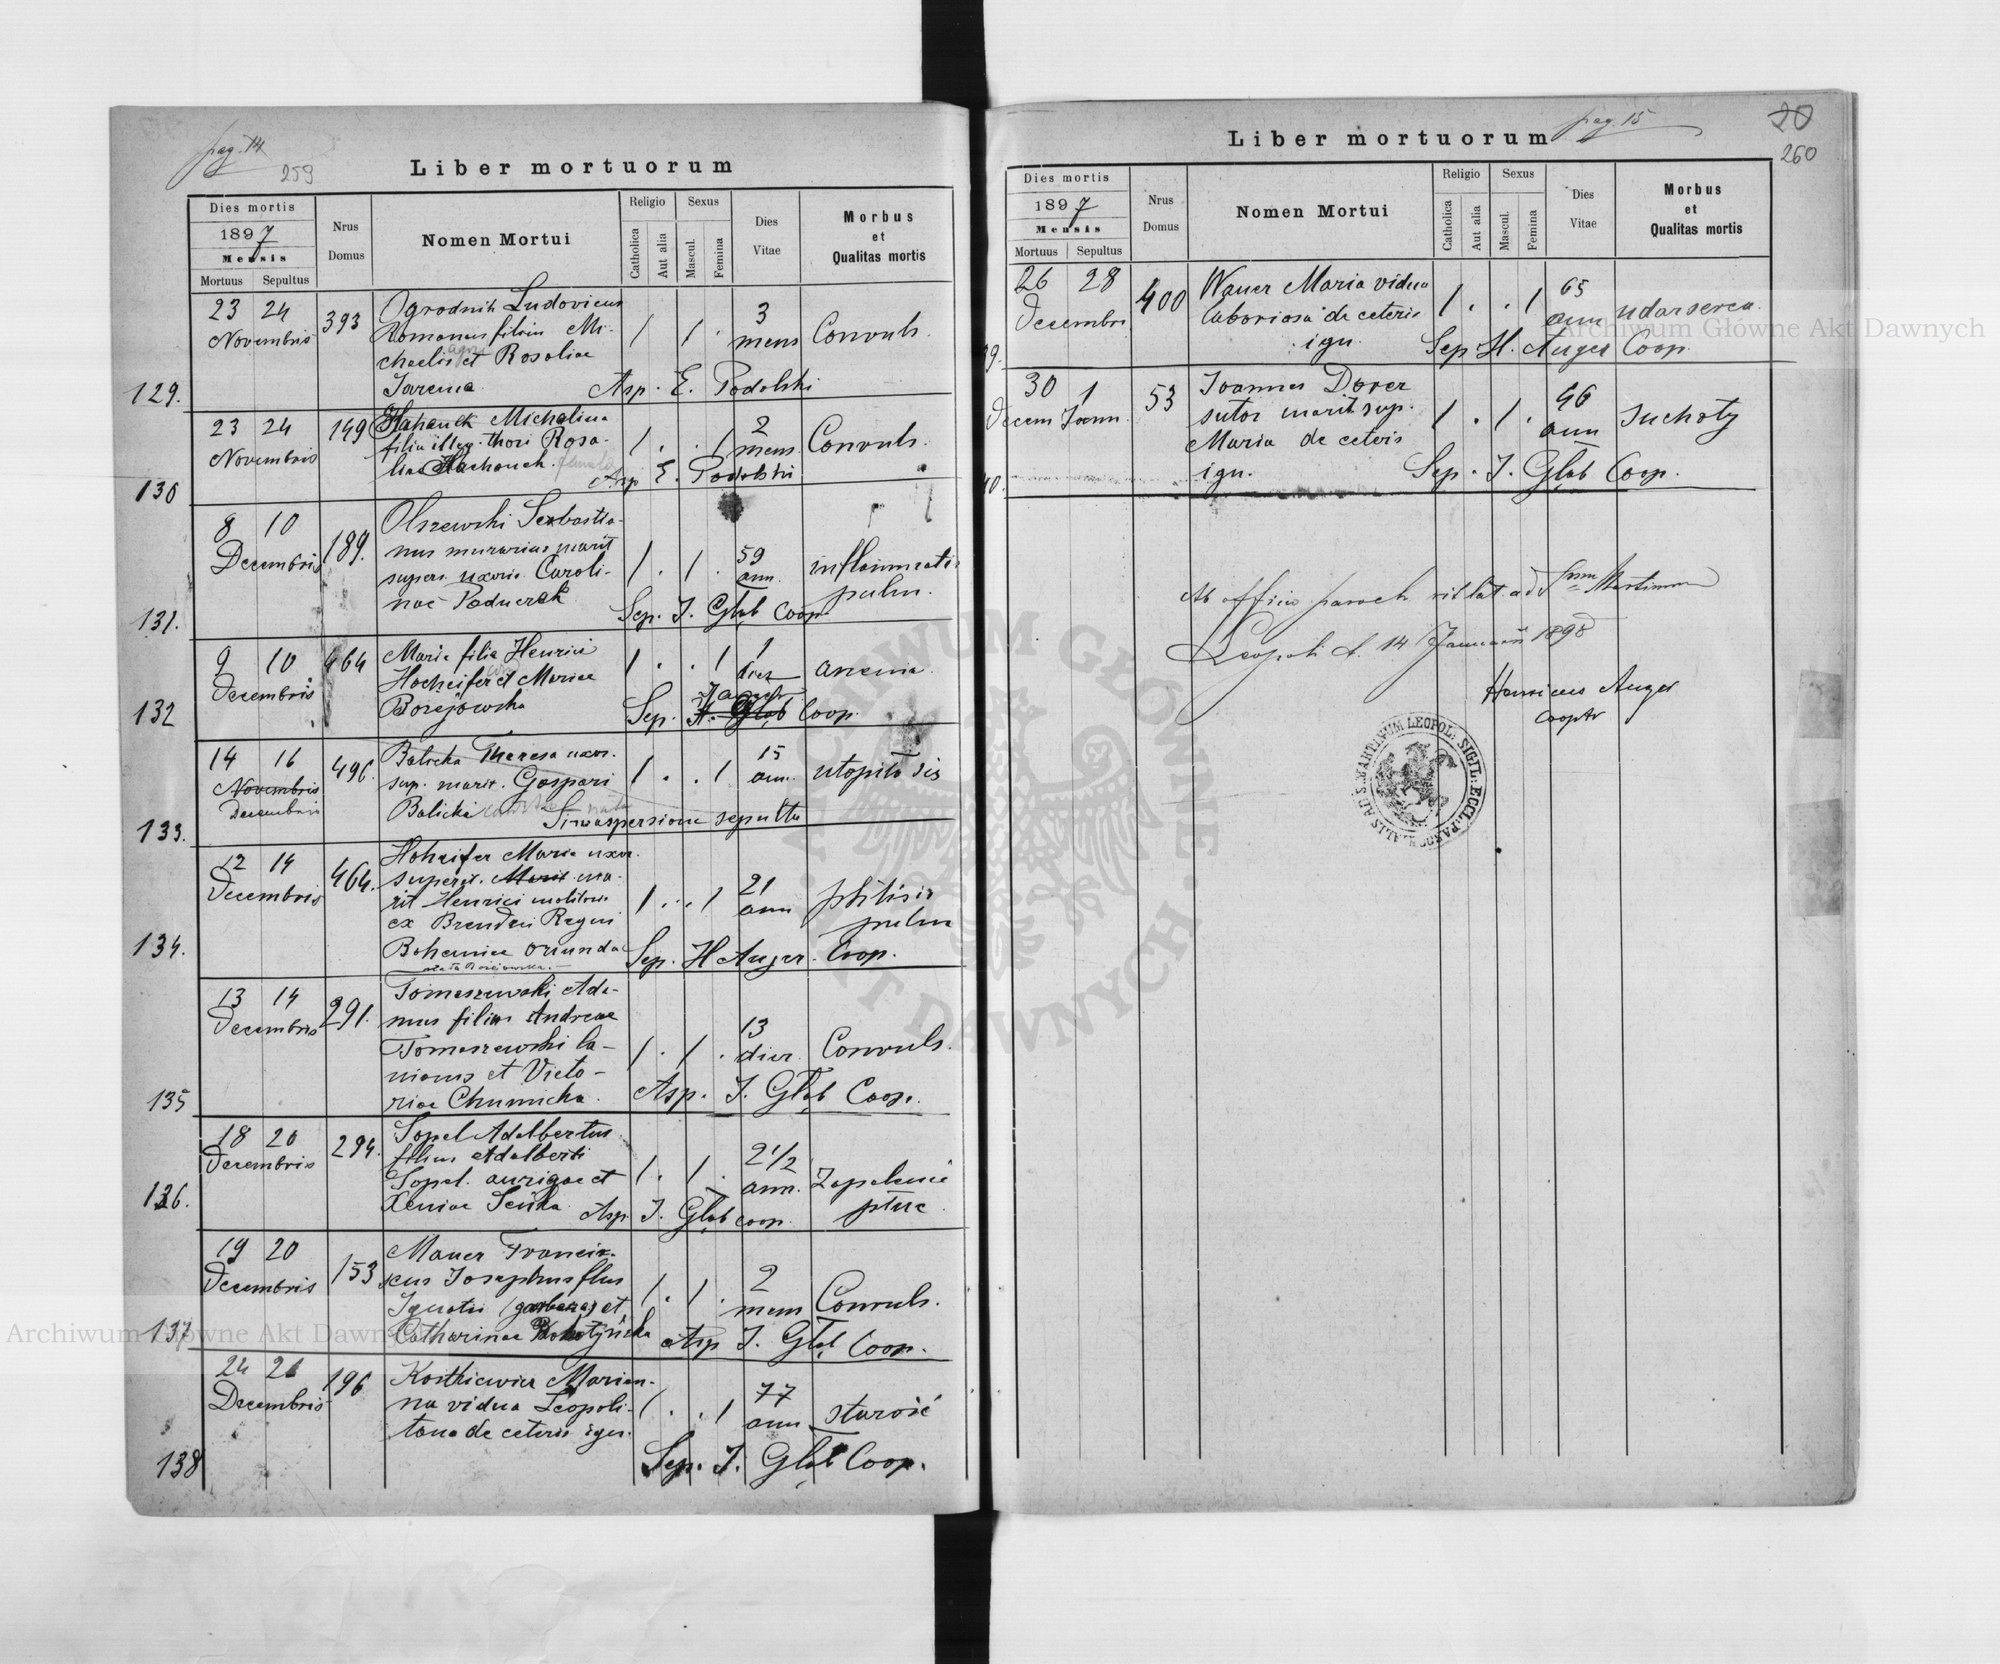 pag. 14
259
Liber mortuorum
Dies mortis
1897
Mensis
Mortuus Sepultus
Nrus Domus
Nomen Mortui
Religio
Catholica
Aut alia
Sexus
Mascul.
Femina
Dies Vitae
Morbus et Qualitas mortis
129.
23 24
Novembris
393
Ogrodnik Ludovicus
Romanus filius Mi-
chaelis et Rosaliae
Jarema
1 1
3
mens
Convuls.
Asp. E. Podolski
130
23 24
Novembris
149
Michalina
filia illeg. thori Rosa-
liae
1 . . 1
2
mens
Convuls.
Asp E. Podolski
131.
8 10
Decembris
189.
Olszewski Sebastia-
nus murarius marit
supers. uxoris Caroli-
nae
1 . 1 .
59
ann.
inflammatio
pulm.
Sep. J. Głąb Coop
132
9 10
Decembris
464
Maria filia Henrici
Hocheifer et Mariae
Borejowska
1 . . 1
1
diei
anemia
Sep. H. Głąb Coop.
133.
14 16
Novembris
Decembris
496.
Balicka Theresa uxor.
sup. marit. Gaspari
Balicki
1 . . 1
15
ann.
utopiła się
Sine aspersione sepulta
134.
12 14
Decembris
464.
Hoheifer Maria uxor.
superst. Marit ma-
rit Henrici molitoris
ex Brendei Regni
Bohemiae oriunda
1 . . 1
21
ann
phtisis
pulm
Sep. H Auger Coop.
135
13 14
Decembris
291.
Tomaszewski Ada-
mus filius Andreae
Tomaszewski la-
nionis et Victo-
riae Chumicka
1 . 1 .
13
dier.
Convuls.
Asp. J. Głąb Coop.
136.
18 20
Decembris
294.
Sopel Adalbertus
filius Adalberti
Sopel aurigae et
Xeniae Seńka
1 . 1 .
2 1/2
ann.
Zapalenie
płuc
Asp J. Głąb coop.
137
19 20
Decembris
153
Maner Francis-
cus Josephus flius
Ignatii (garbarz) et
Catharinae
1 . 1 .
2
mens
Convuls.
Asp J. Głąb Coop.
138
24 26
Decembris
196
Kostkiewicz Marian-
na vidua Leopoli-
tana de ceteris ign.
1 . . 1
77
ann
starość
Sep. J. Głąb Coop.
pag. 15
20
260
Liber mortuorum
Dies mortis
1897
Mensis
Mortuus Sepultus
Nrus Domus
Nomen Mortui
Religio
Catholica
Aut alia
Sexus
Mascul.
Femina
Dies Vitae
Morbus et Qualitas mortis
26 28
Decembri
400
Waner Maria vidua
laboriosa de ceteris
ign.
1 . . 1
65
ann
udar serca.
Sep. H. Auger Coop.
30 1
Decem Joann.
53
Joannes Dorer
sutor marit. sup.
Maria de ceteris
ign.
1 . 1 .
46
ann
suchoty
Sep. J. Głąb Coop.
Ab officio paroch rit lat ad Martinum
Leopoli d. 14 Januarii 1898
Henricus Auger
Cooptr
Archiwum Główne Akt Dawnych
Archiwum Główne Akt Dawnych
ARCHIWUM GŁÓWNE AKT DAWNYCH
SIGIL: ECCL: PAROCHIALIS AD S. MARTINUM LEOPOL: